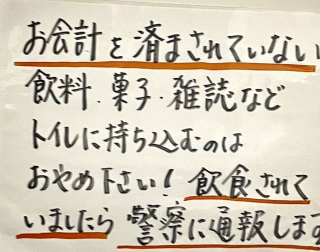 お会計を済まされていない
飲料・菓子・雑誌など
トイレに持ち込むのは
おやめ下さい！飲食されて
いましたら警察に通報します